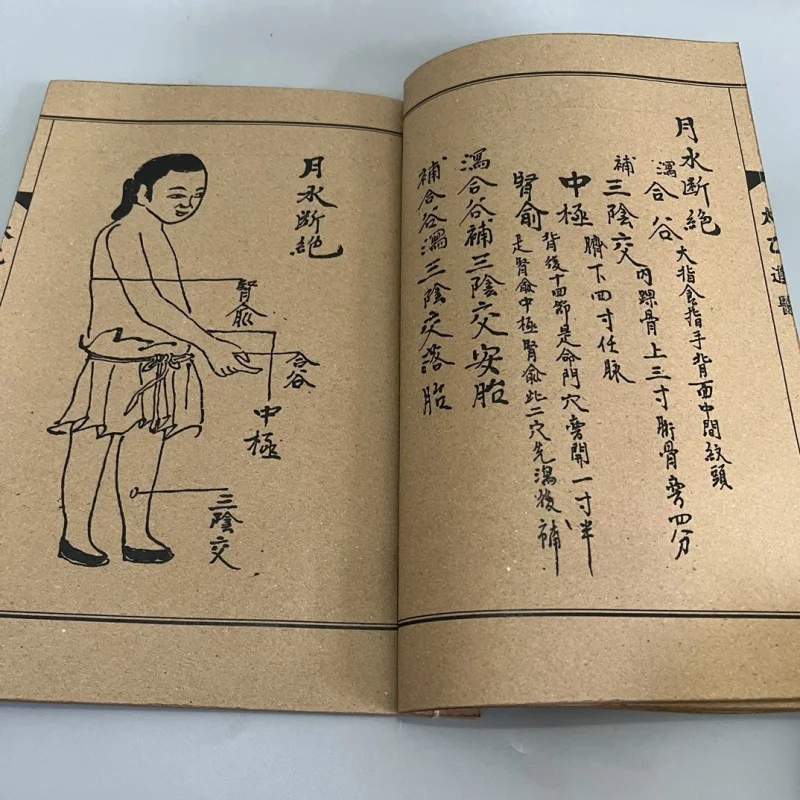 月水断絶
瀉合谷 大指食指手背面中間紋頭
補三陰交 内踝骨上三寸骱骨旁四分
中極 臍下四寸任脉
腎俞 背後十四節是命門穴旁開一寸半
是腎俞中極腎俞此二穴先瀉後補
瀉合谷補三陰交安胎
補合谷瀉三陰交落胎
太乙道醫
月水断絶
腎俞
合谷
中極
三陰交